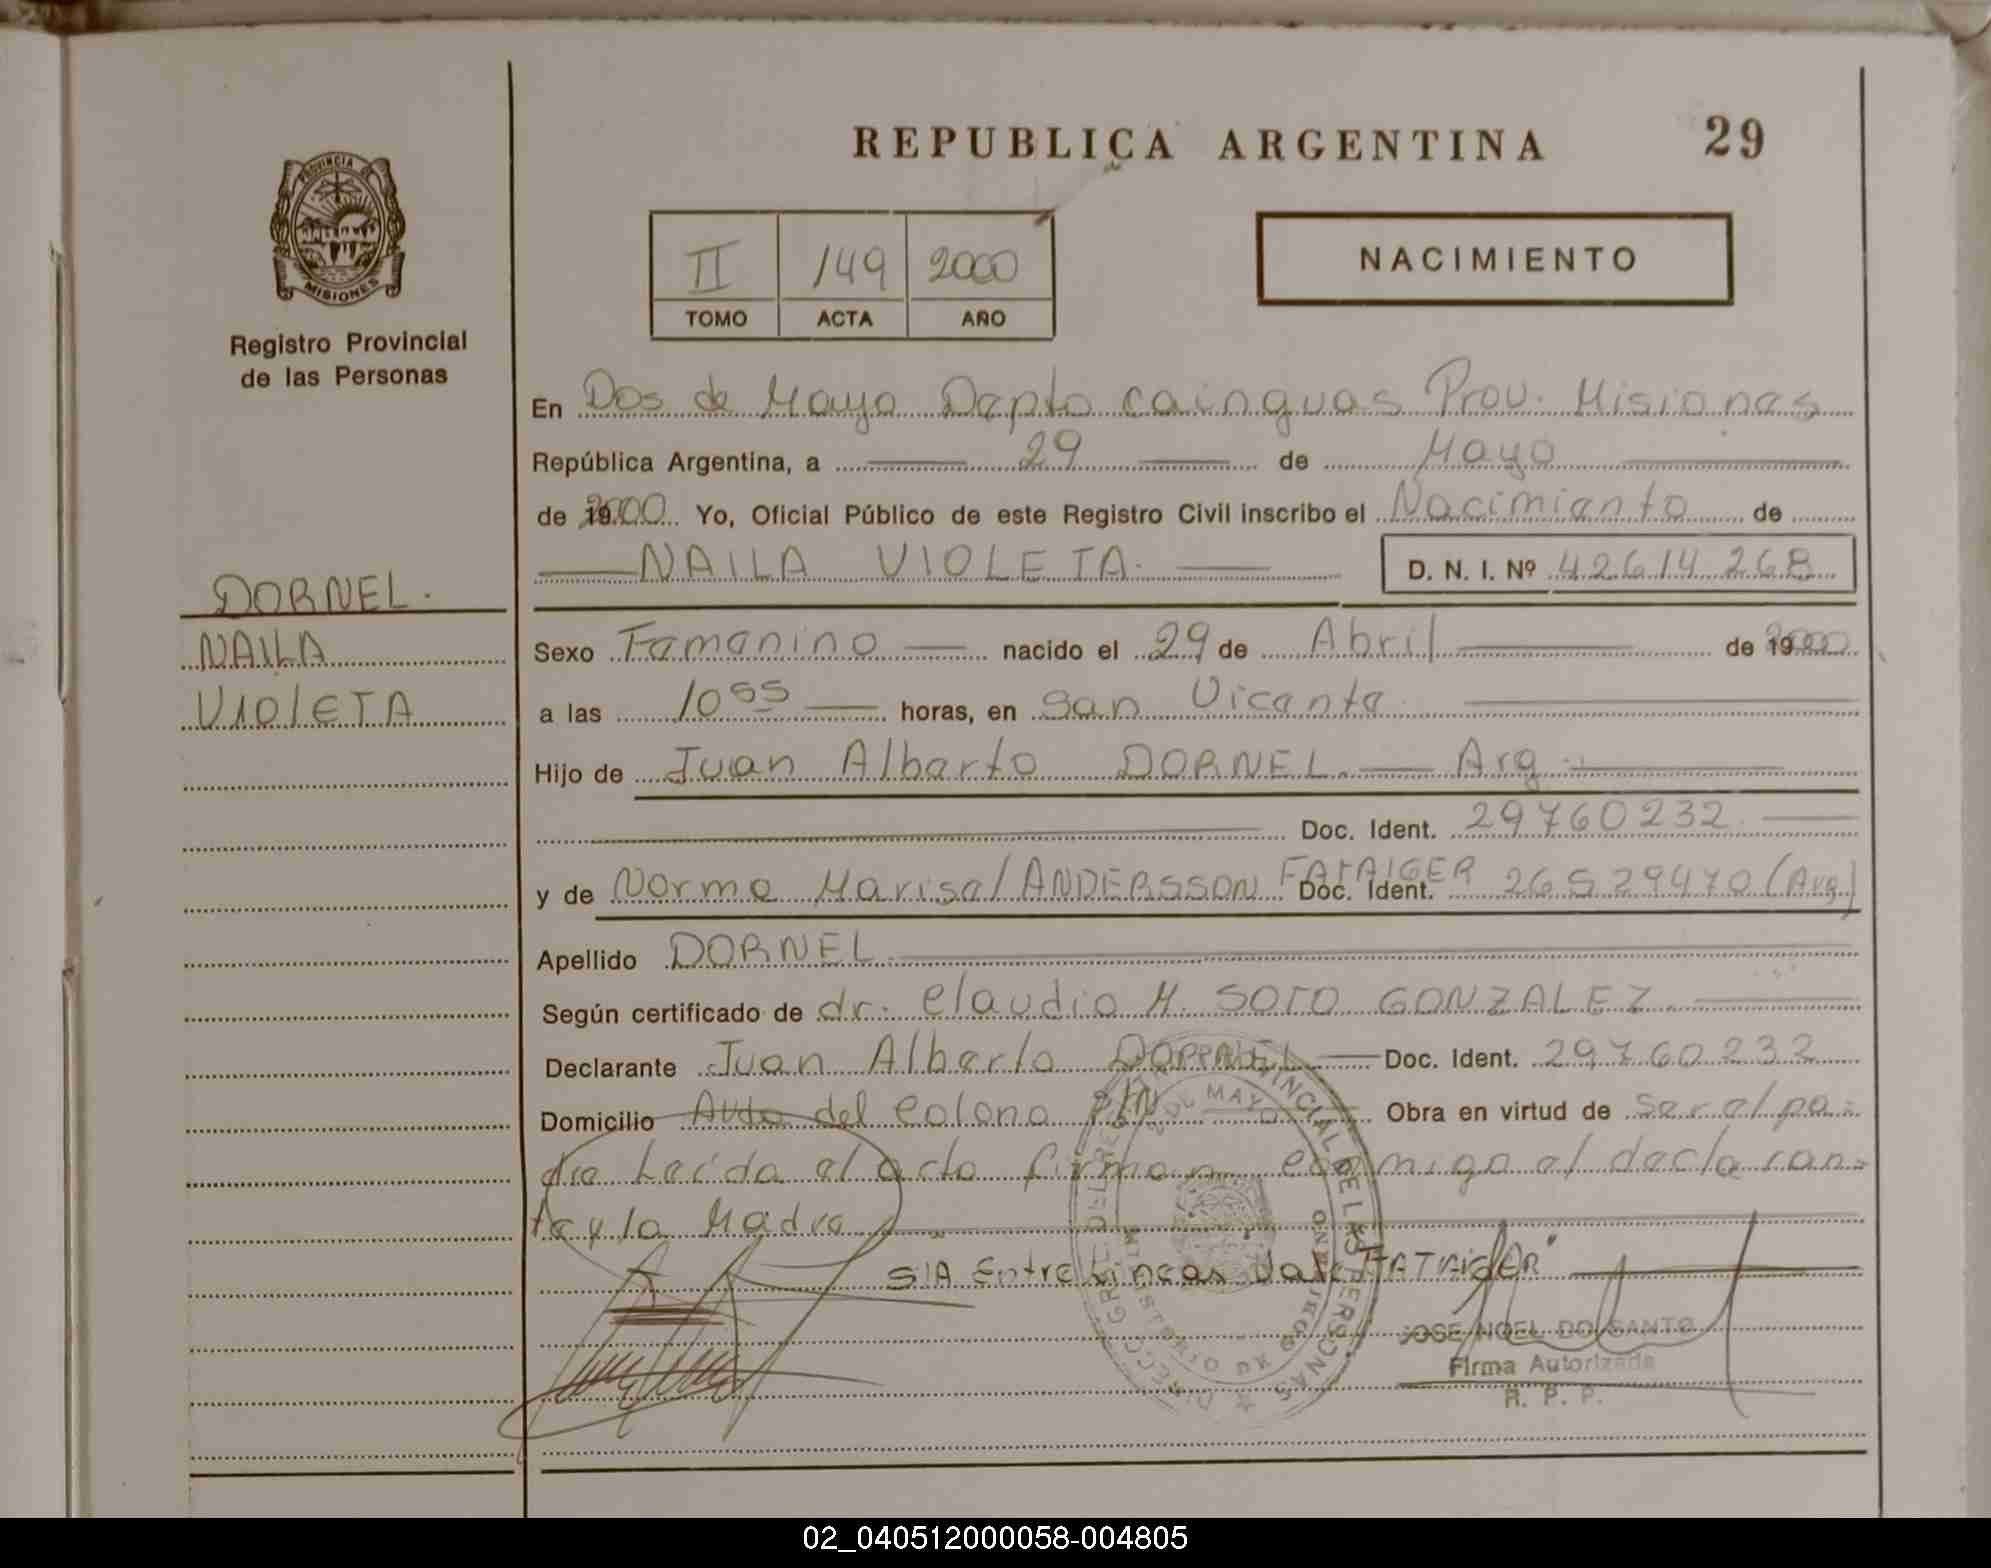 REPUBLICA ARGENTINA 29
PROVINCIA DE
MISIONES
Registro Provincial
de las Personas
II 149 2000
TOMO ACTA AÑO
NACIMIENTO
En Dos de Mayo Depto Cainguas Prov. Misiones
República Argentina, a 29 de Mayo
de 2000 Yo, Oficial Público de este Registro Civil inscribo el Nacimiento de
NAILA VIOLETA. D. N. I. Nº 42614268
DORNEL.
NAILA
VIOLETA
Sexo Femenino nacido el 29 de Abril de 2000
a las 10 55 horas, en San Vicente
Hijo de Juan Alberto DORNEL. Arg.
Doc. Ident. 29760232
y de Norma Marisel ANDERSSON FATAIGER Doc. Ident. 26529470 (Arg)
Apellido DORNEL
Según certificado de dr. Claudio M. SOTO GONZALEZ
Declarante Juan Alberto DORNEL Doc. Ident. 29760232
Domicilio Avda del Colono S/N Obra en virtud de Ser el pa-
dre Leída el acta firman conmigo el declaran-
te y la Madre
S/A Entre Lineas Vale "FATAIGER"
JOSE NOEL DO SANTO
Firma Autorizada
R. P. P.
02_040512000058-004805